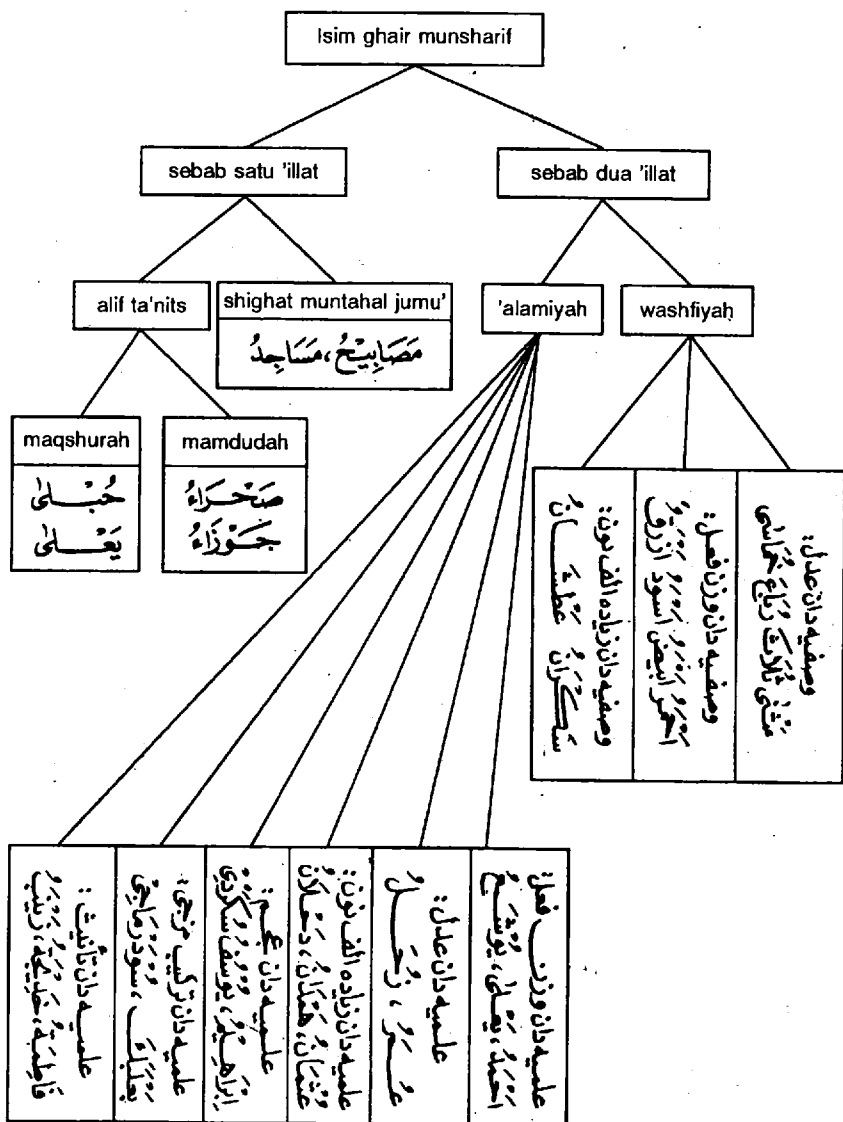 Isim ghair munsharif
sebab satu 'illat
sebab dua 'illat
alif ta'nits
shighat muntahal jumu'
مَصَابِيْحُ، مَسَاجِدُ
'alamiyah
washfiyah
maqshurah
حُبْلىٰ
يَعْلىٰ
mamdudah
صَحْرَاءُ
جَوْزَاءُ
وصفيه دان زياده الف نون:
سَكْرَانُ عَطْشَانُ
وصفيه دان وزن فعل:
اَحْمَرُ اَبْيَضُ اَسْوَدُ اَزْرَقُ
وصفيه دان عدل:
مَثْنٰى ثُلَاثَ رُبَاعَ خُمَاسٰى
علميه دان تأنيث:
فَاطِمَةُ، خَدِيْجَةُ، زَيْنَبُ
علميه دان تركيب مزجي:
بَعْلَبَكَّ،
علميه دان عجم:
اِبْرَاهِيْمُ، يُوْسُفُ
علميه دان زياده الف نون:
عُثْمَانُ، هَمْدَانُ، دَحْلَانُ
علميه دان عدل:
عُمَرُ، زُحَلُ
علميه دان وزن فعل:
اَحْمَدُ، يَعْلىٰ، يُوْشَعُ